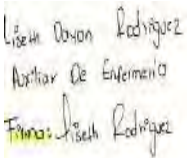 Liseth Dayan Rodriguez
Auxiliar De Enfermeria
Firma: Liseth Rodriguez